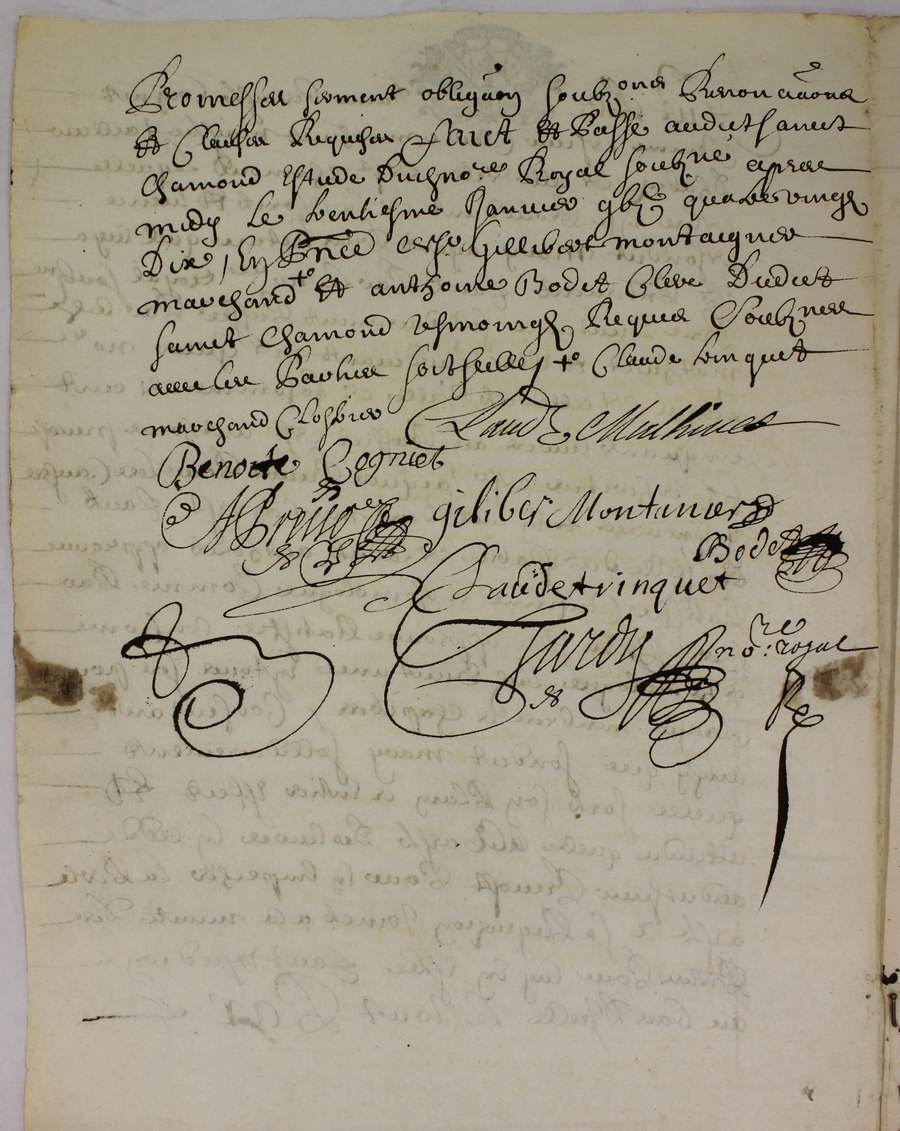 Promesses serment obligaon soubzons Renonciaons
et Clauses Requises Faict et Passé audict sainct
Chamond Estude Dudict nore Royal soubzné apres
midy le ventiesme Janvier gbjc quatre vingt
Dix, En Pnce de sr Gillibert montaignier
marchand + et anthoine Bodet Clerc Dudict
sainct Chamond tesmoingz Requis Soubznes
avec les Parties + Claude trinquet
marchand
Claude Mathieu
Benoite Cogniet
gilibert Montanier
Bodet
Claude trinquet
Jardy
nore royal